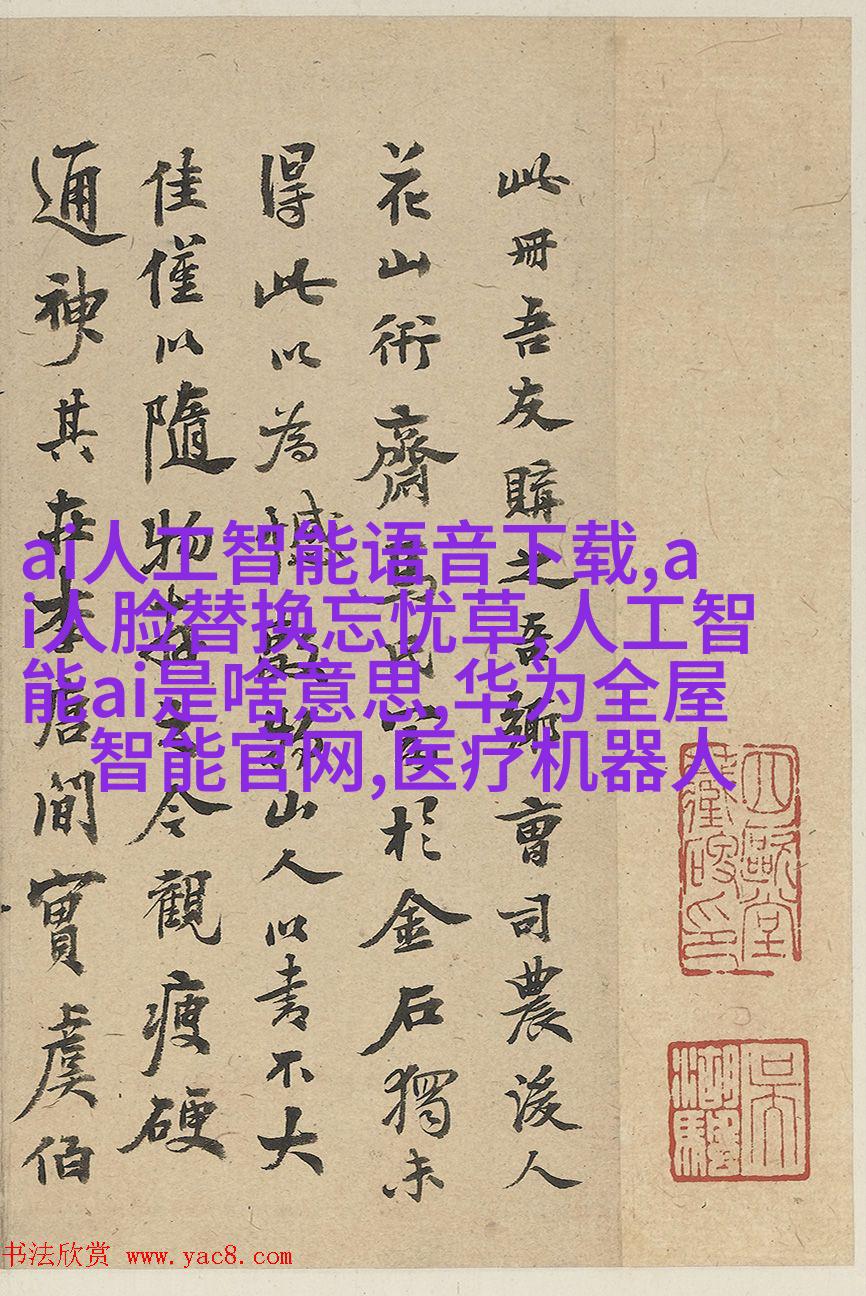 此冊吾友購之吾鄉曹司農後人
花山衎齋馬氏富於金石獨未
得此以為憾物山人以書不大
佳僅以隨物今觀瘦硬
通神其在李唐間實虞伯
ai人工智能语音下载,a
i人脸替换忘忧草,人工智
能ai是啥意思,华为全屋
智能官网,医疗机器人
书法欣赏 www.yac8.com